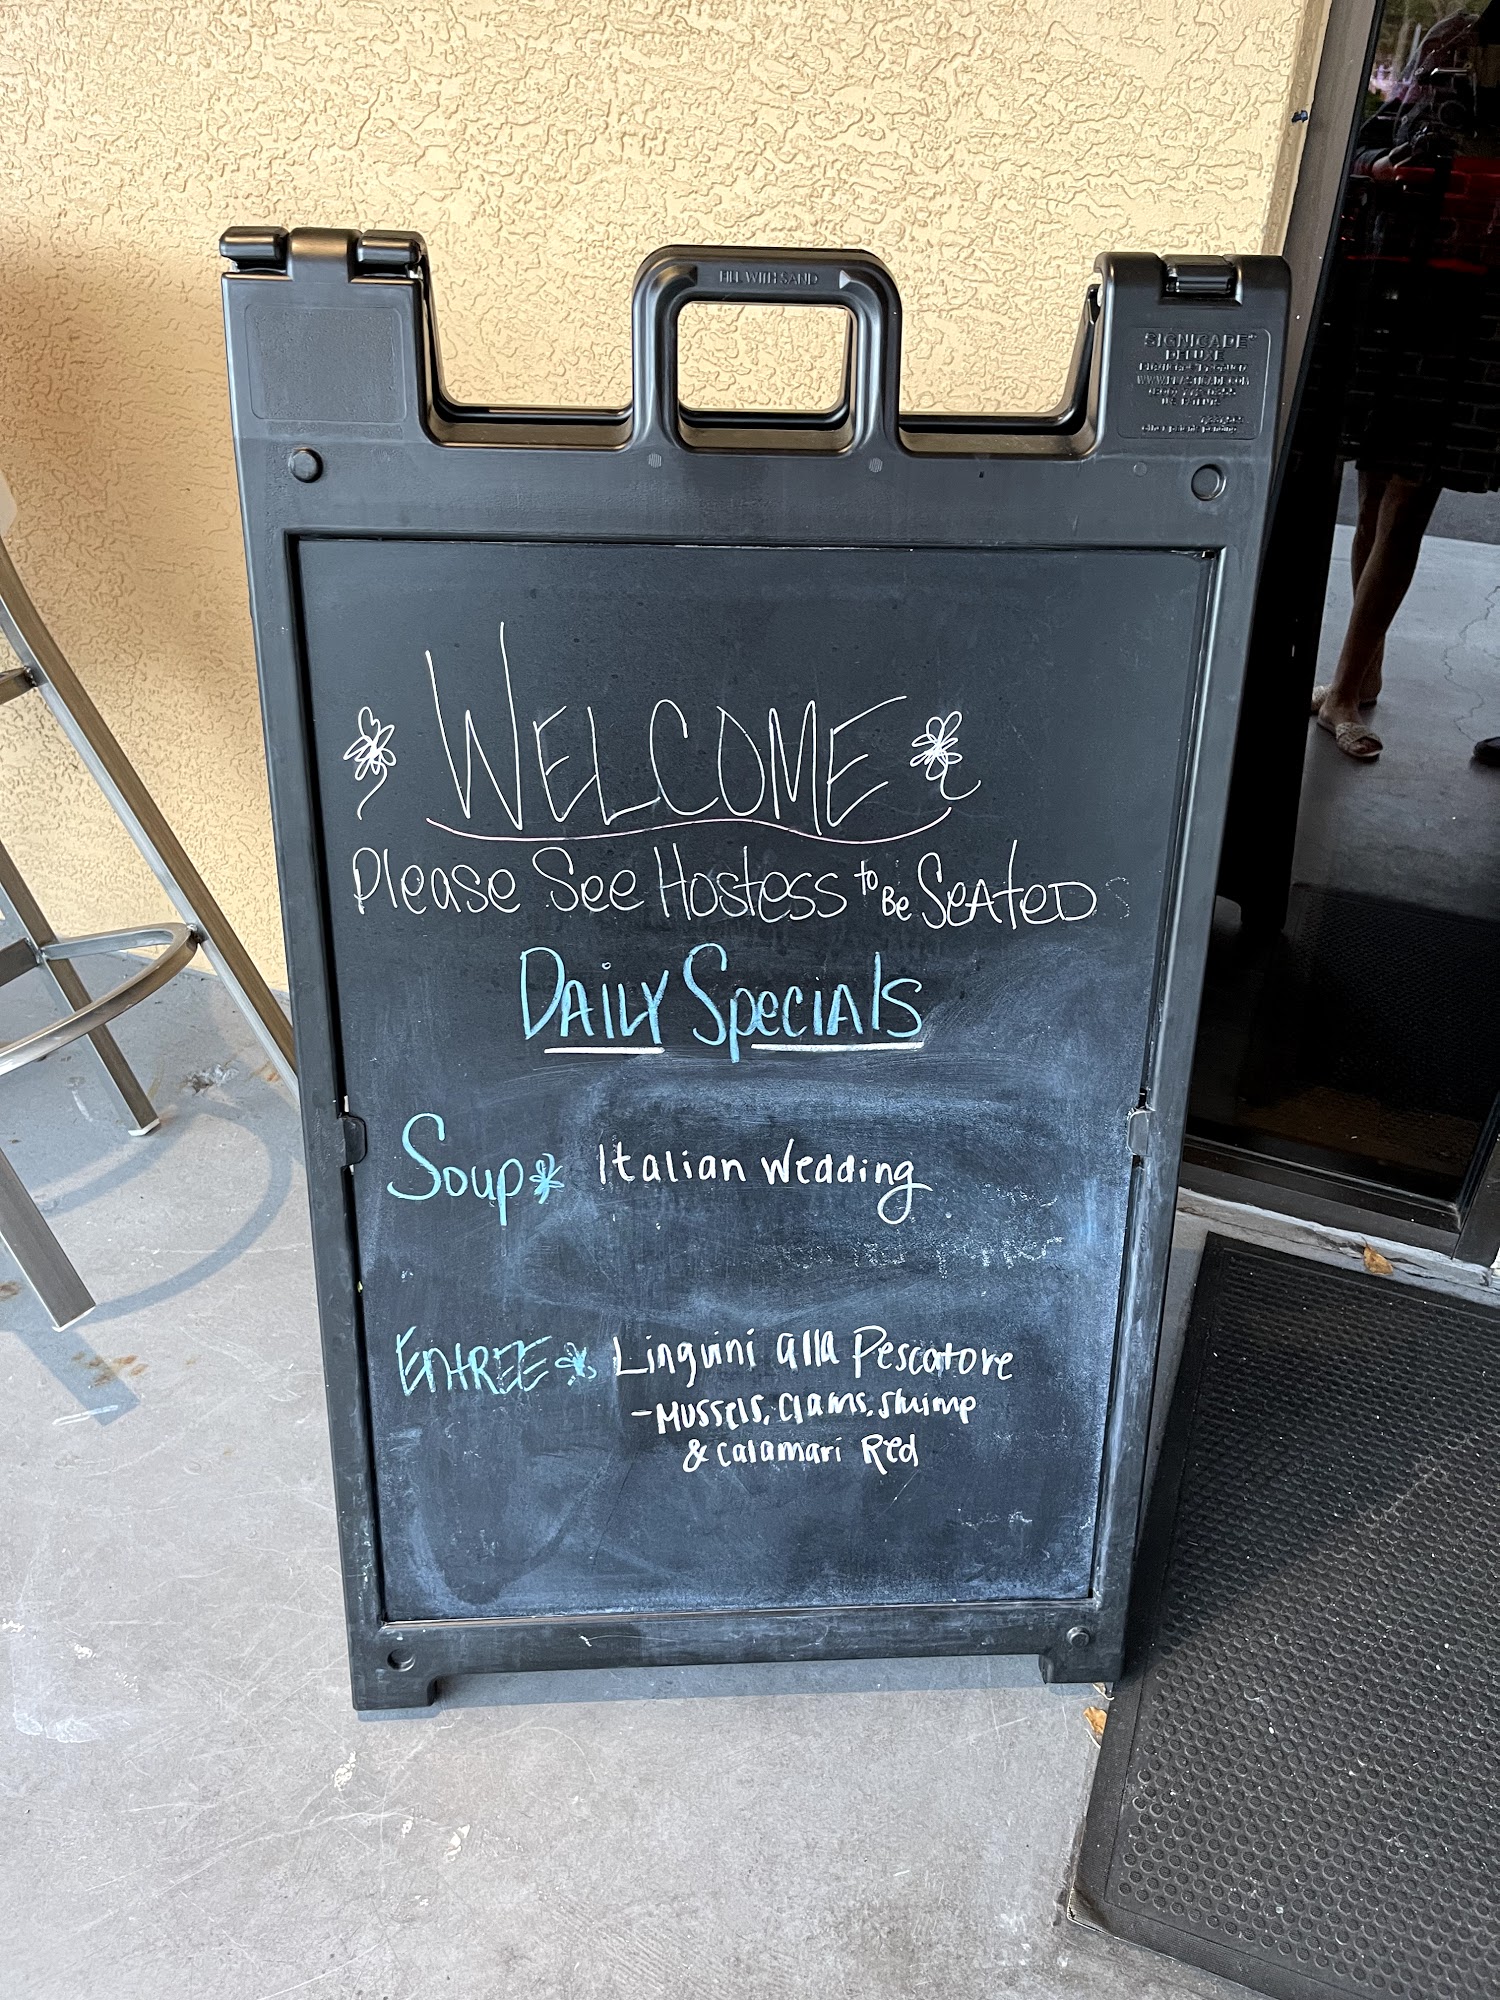 FILL WITH SAND
SIGNICADE
DELUXE
WELCOME
Please See Hostess to Be Seated
Daily Specials
Soup Italian Wedding
Entree Linguini alla Pescatore
- Mussels, Clams, Shrimp
& Calamari Red